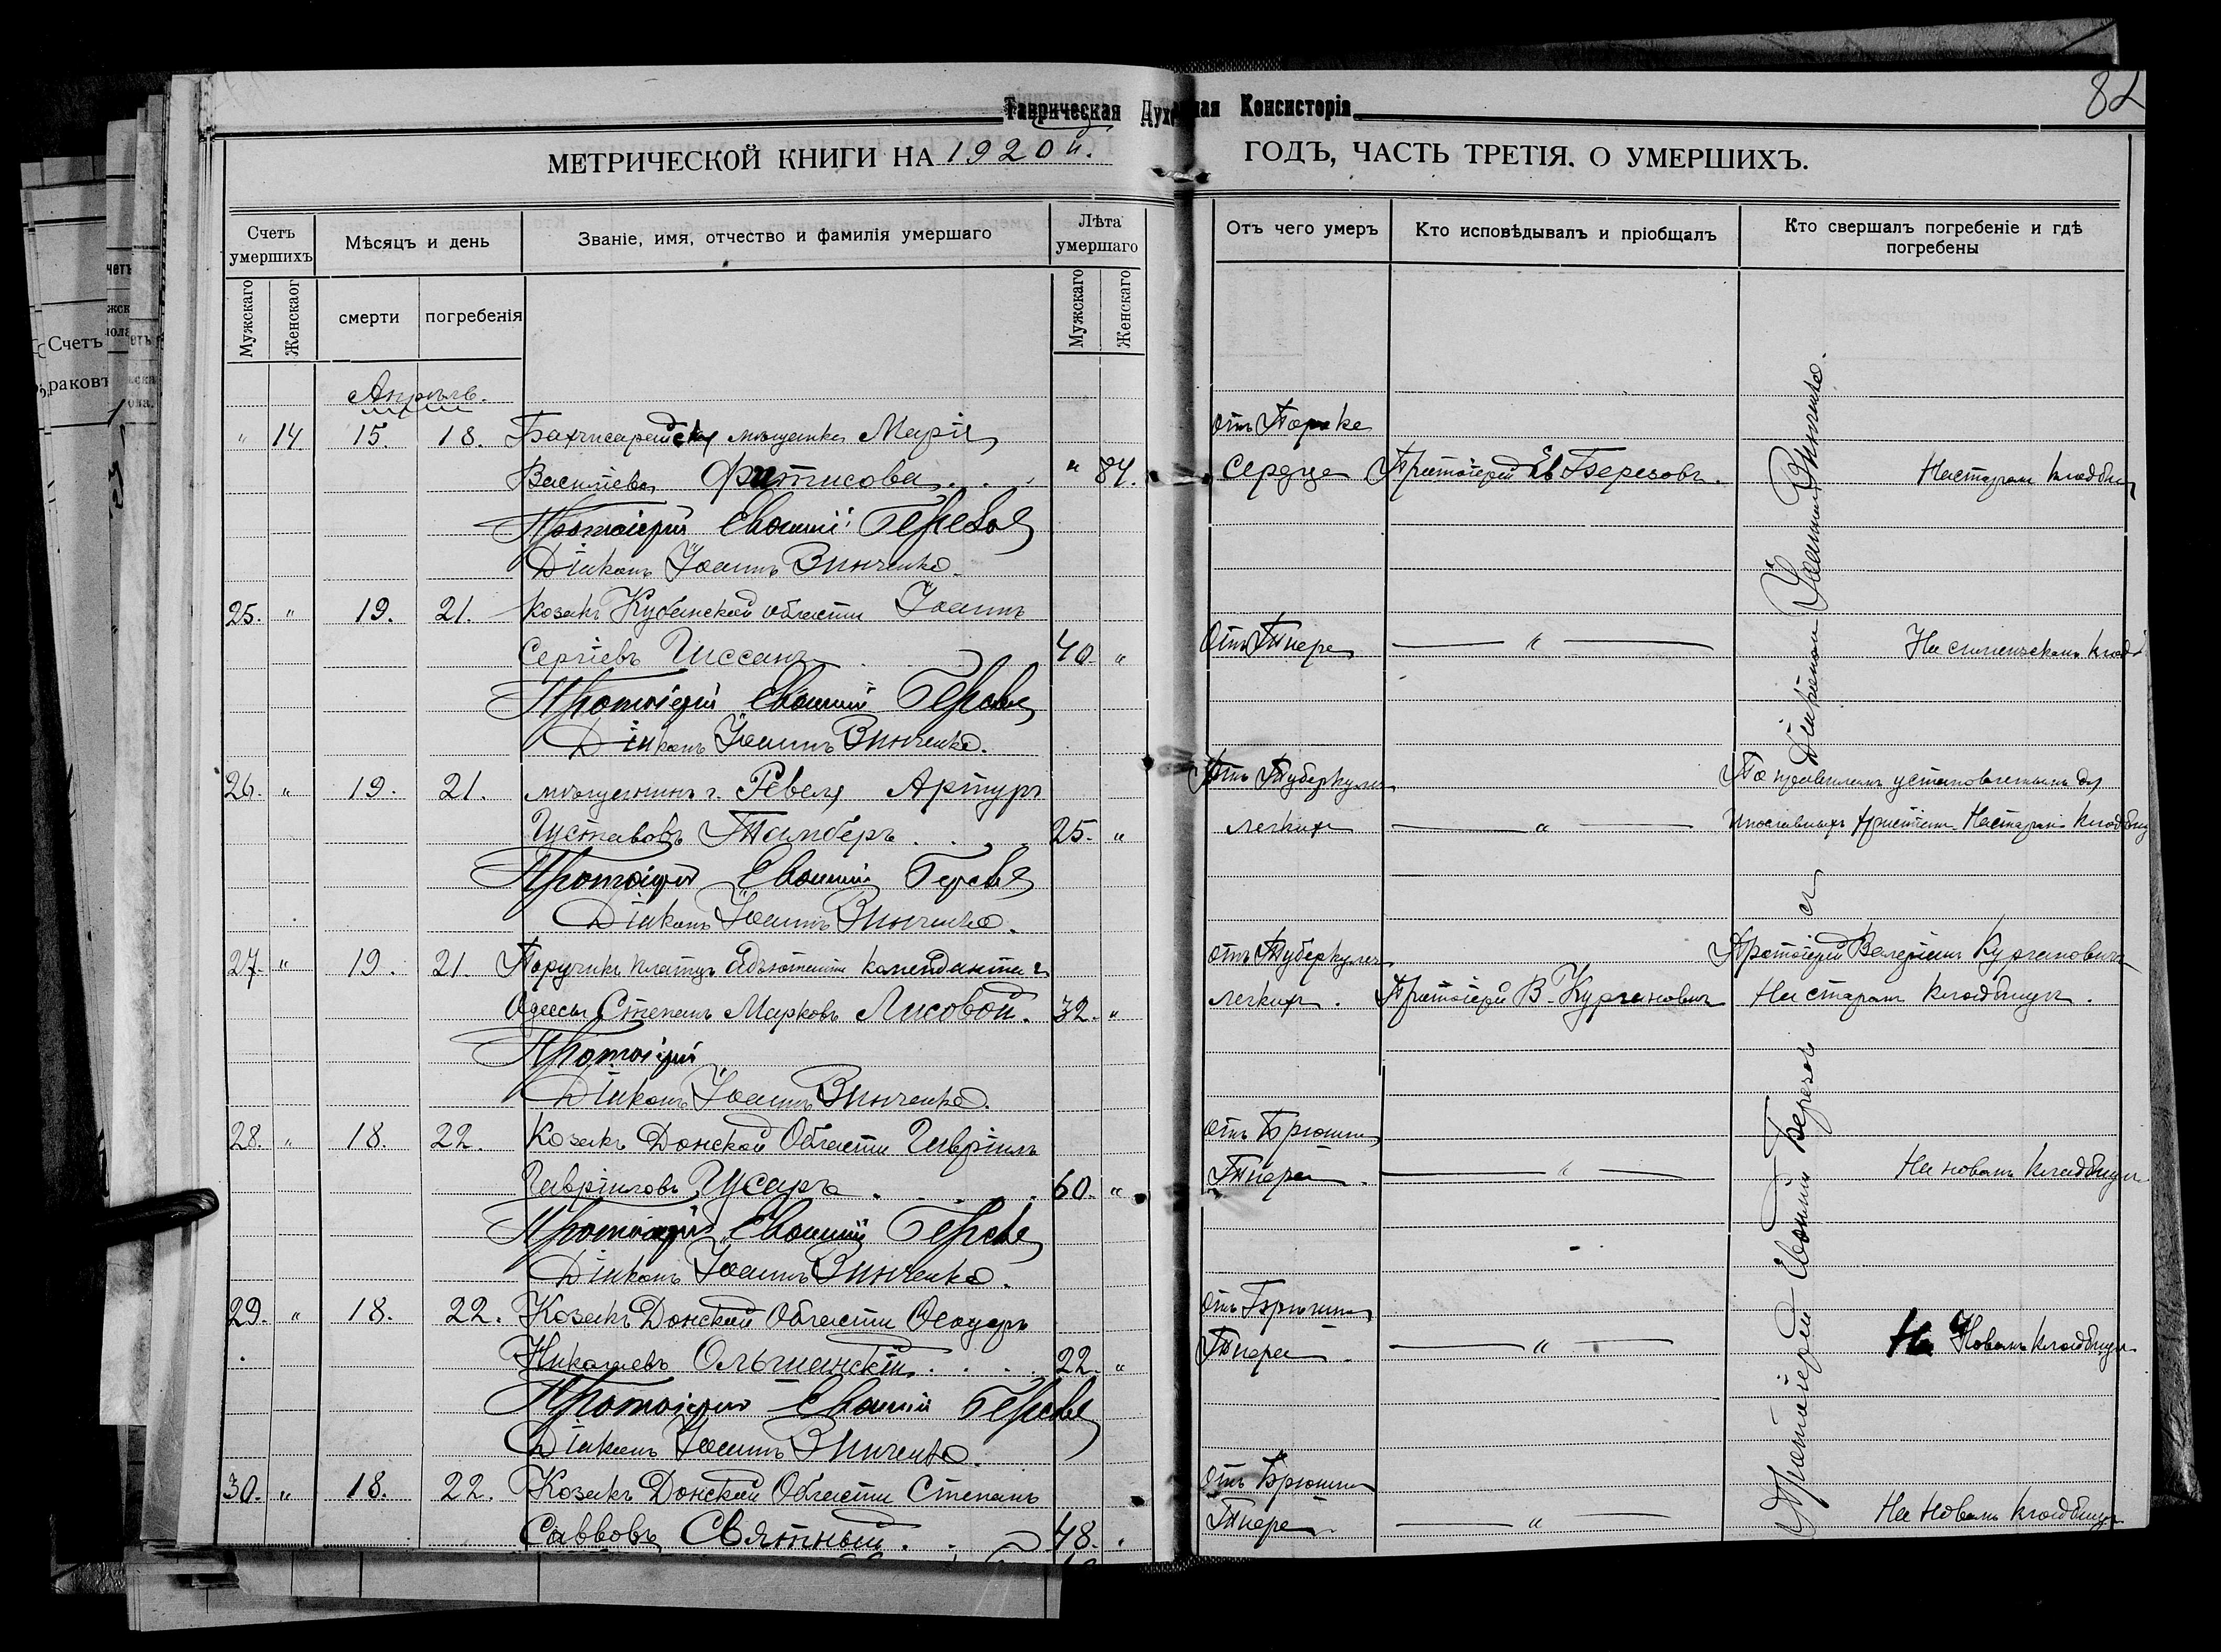 Таврическая Духовная Консисторія
82
МЕТРИЧЕСКОЙ КНИГИ НА 1920й.
ГОДЪ, ЧАСТЬ ТРЕТІЯ. О УМЕРШИХЪ.
Счетъ умершихъ
Мѣсяцъ и день
Званіе, имя, отчество и фамилія умершаго
Лѣта умершаго
Отъ чего умеръ
Кто исповѣдывалъ и пріобщалъ
Кто свершалъ погребеніе и гдѣ погребены
Мужскаго
Женскаог
смерти
погребенія
Мужскаго
Женскаго
Апрѣль.
" 14 15. 18. Бахчисарайская мѣщанка Марія
отъ Порока
Васильева Фитисова " 84. Сердца Протоіерей Ев Березовъ. На старом кладбищ
Протоіерей Евфимій
Діаконъ Іоаннъ Зинченко.
25. " 19. 21. Козакъ Кубанской области Іоаннъ
Сергіевъ 40. " Отъ Тифа — " — На кладб
Протоіерей Евфимій
Діаконъ Іоаннъ Зинченко.
26. " 19. 21. мѣщанинъ г. Ревеля Артуръ
Отъ Туберкулеза
По правиламъ установленнымъ для
Густавовъ Тамберъ 25. " легкихъ — " — Инославныхъ Христіанъ На старом кладбищ
Протоіерей Евфимій
Діаконъ Іоаннъ Зинченко.
27. " 19. 21. Поручикъ Плацъ Адъютантъ коменданта г.
отъ Туберкулеза
Протоіерей Валеріанъ Кургановичъ
Одессы Степанъ Марковъ Лисовой. 32. " легкихъ. Протоіерей В. Кургановичъ На старом кладбищѣ.
Протоіерей
Діаконъ Іоаннъ Зинченко.
28. " 18. 22. Козакъ Донской Области Гавріилъ
отъ Брюшн
Гавріиловъ Гусаръ 60. " Тифа. — " — На новомъ кладбищѣ
Протоіерей Евфимій
Діаконъ Іоаннъ Зинченко.
29. " 18. 22. Козакъ Донской Области Ѳеодоръ
Отъ Брюшн
Николаевъ Ольшанскій 22. " Тифа. — " — На Новомъ кладбищѣ
Протоіерей Евфимій
Діаконъ Іоаннъ Зинченко.
30. " 18. 22. Козакъ Донской Области Степанъ
Отъ Брюшн
Саввовъ Святный. 48. Тифа. — " — На Новомъ кладбищѣ
Протоіерей Евфимій Березовъ съ Діакономъ Іоанномъ Зинченко.
Счетъ